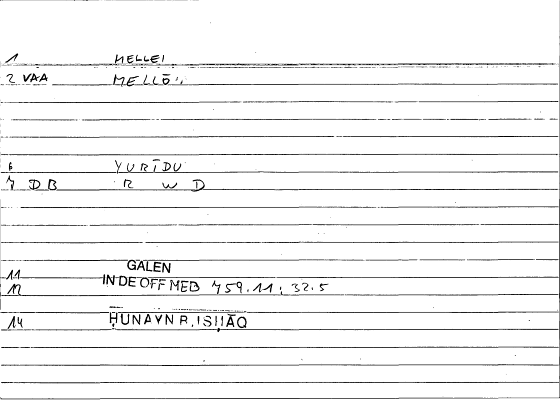 1 MELLEI
2 VAA MELLŌ
6 YURĪDU
7 DB R W D
11 GALEN
12 IN DE OFF MED 759.11; 32.5
14 ḤUNAYN B. ISḤĀQ